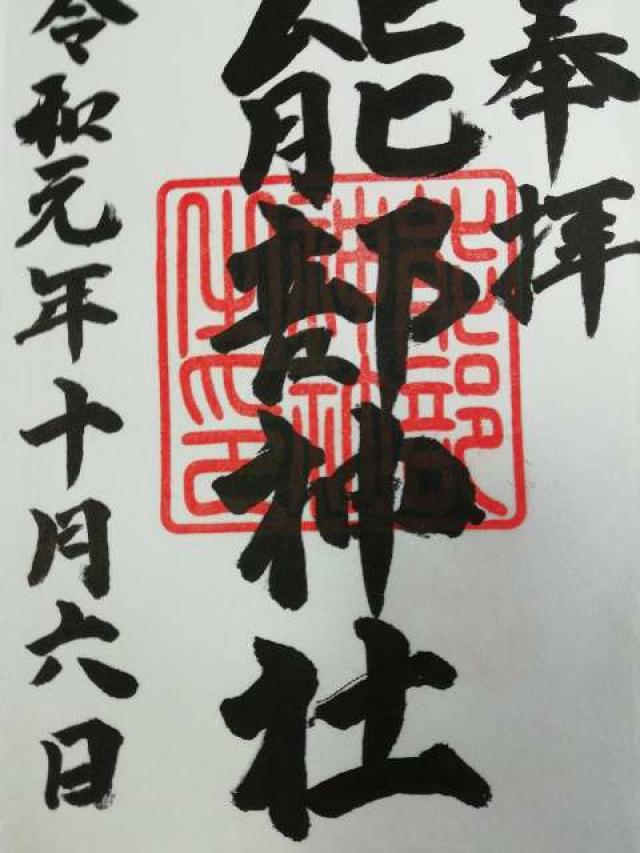 奉拝
能部神社
令和元年十月六日